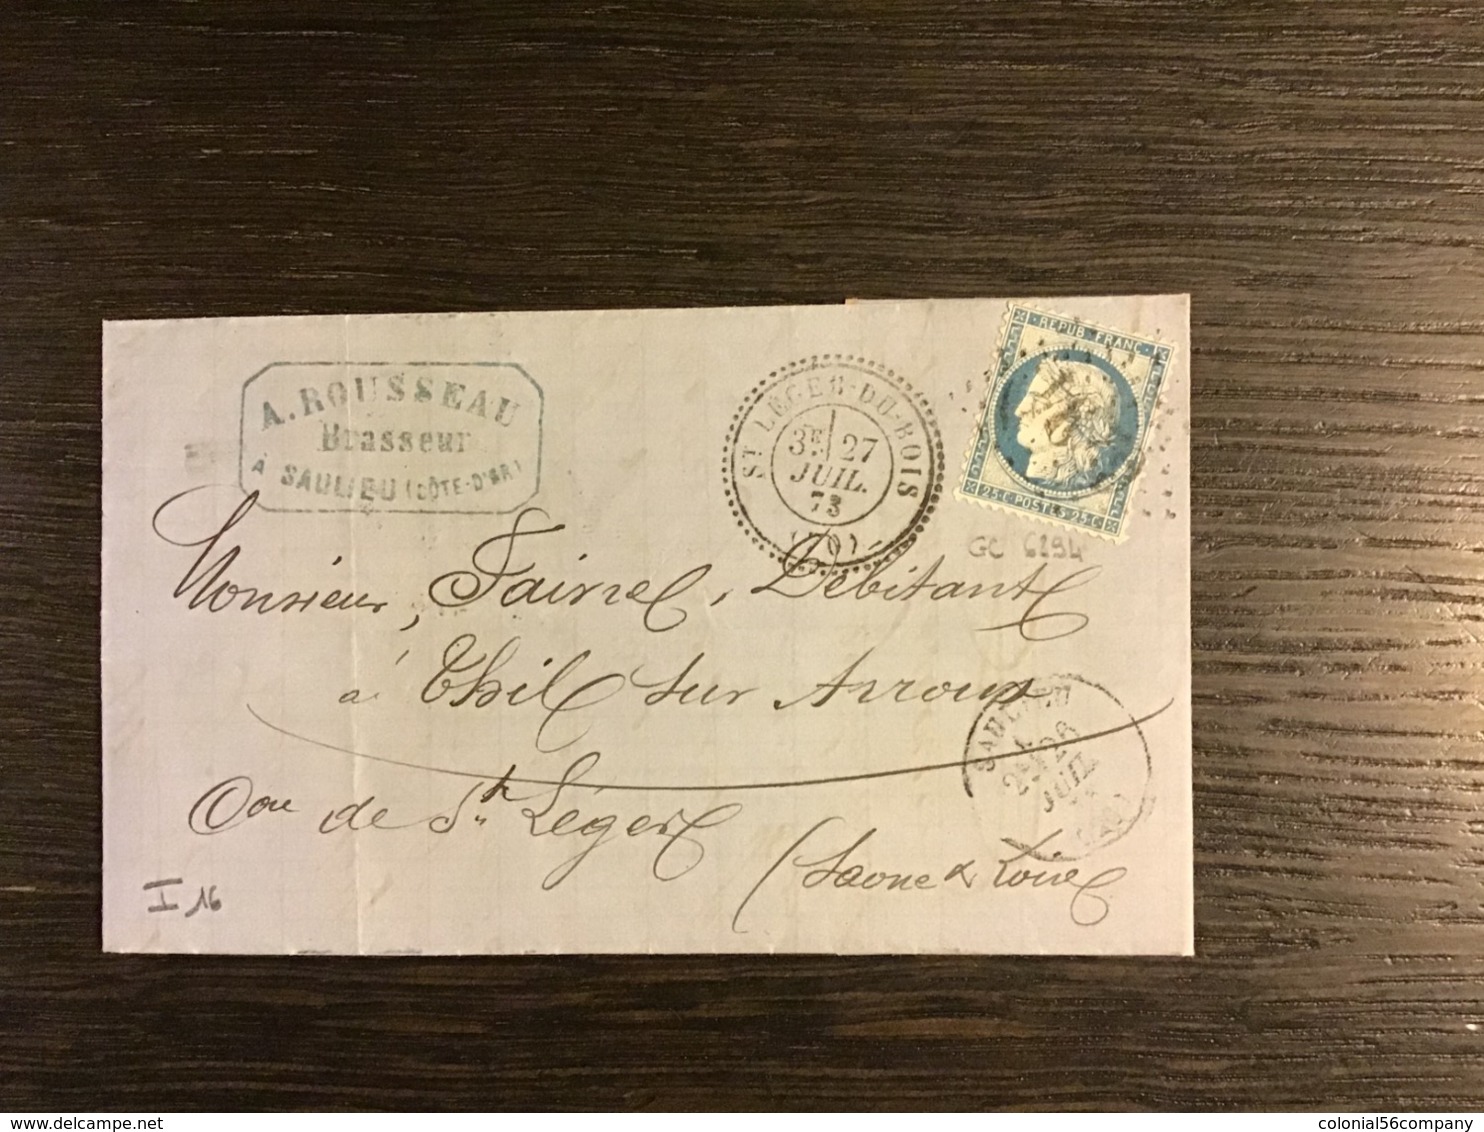 A. ROUSSEAU
Brasseur
À SAULIEU (CÔTE-D'OR)
ST LÉGER-DU-BOIS
3E 27
JUIL.
73
(70)
REPUB. FRANC.
25 C. POSTES 25 C.
GC 6294
Monsieur, Fairnel, Débitant
à Thil sur Arroux
Con de St Léger
(Saone & Loire
SAULIEU
2E 26
JUIL.
(20)
I 16
colonial56company